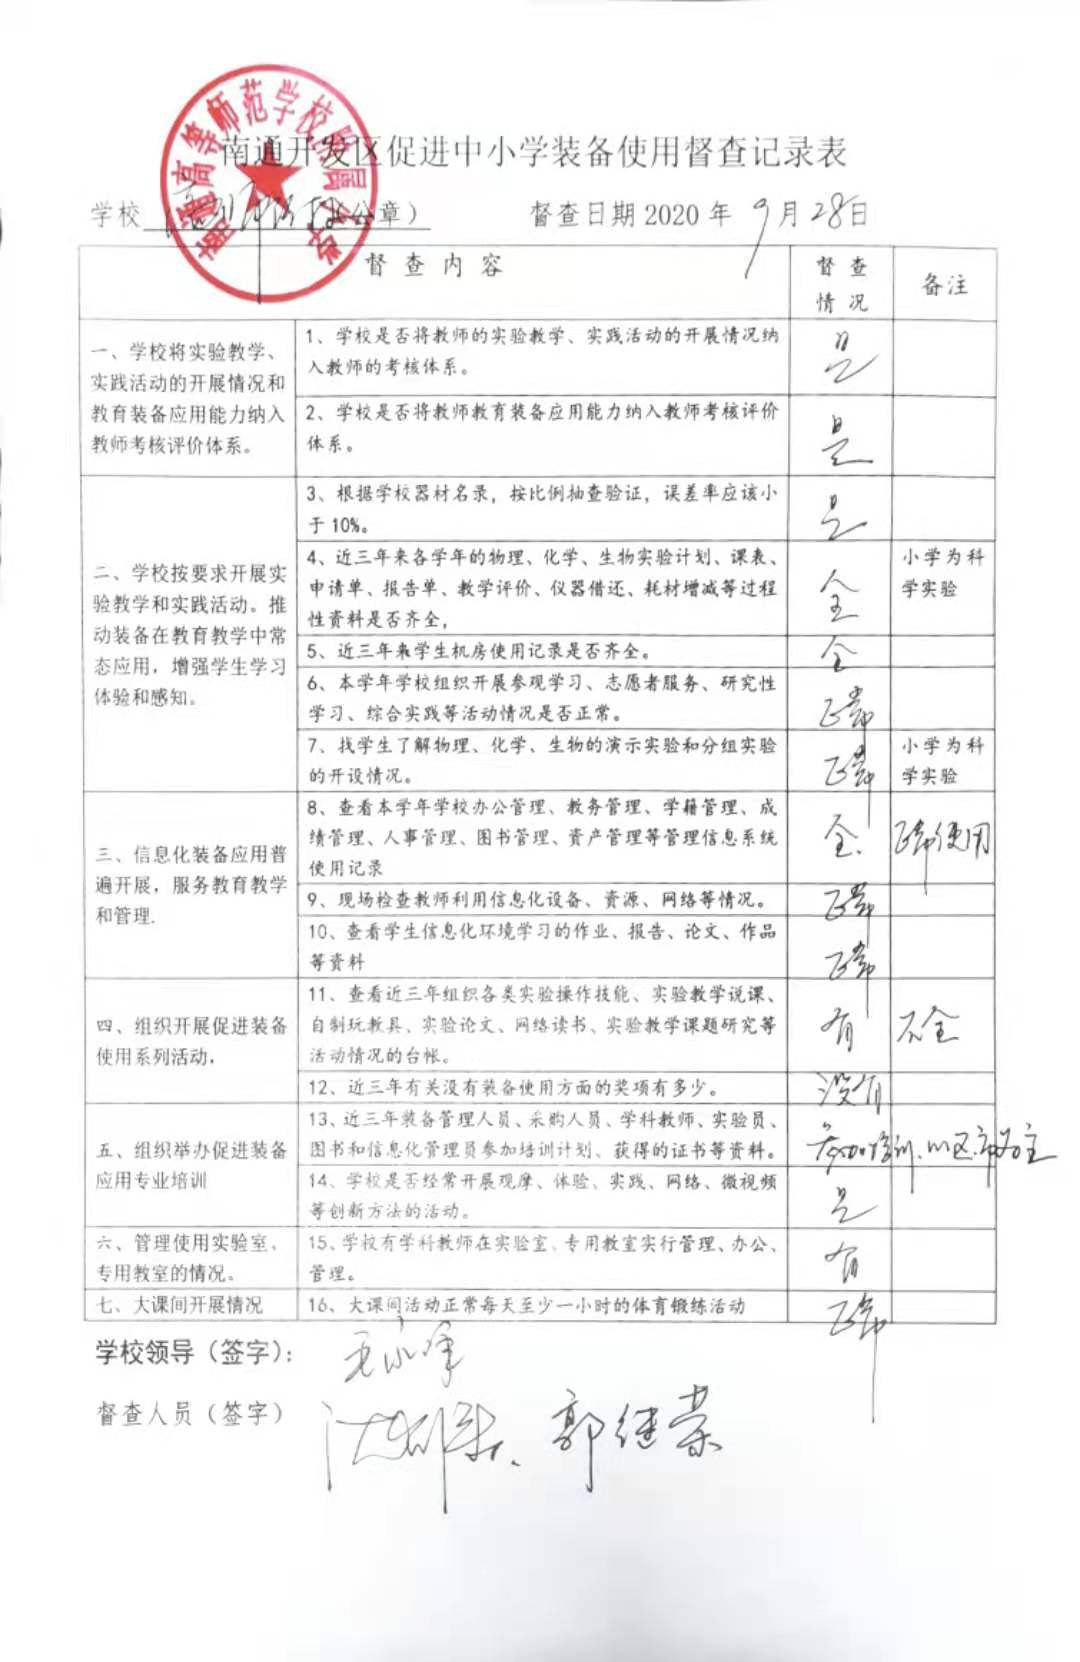 南通高等师范学校附属小学
南通开发区促进中小学装备使用督查记录表
学校（公章） 督查日期 2020 年 9 月 28 日
督 查 内 容
督 查
情 况
备注
一、学校将实验教学、
实践活动的开展情况和
教育装备应用能力纳入
教师考核评价体系。
1、学校是否将教师的实验教学、实践活动的开展情况纳
入教师的考核体系。
是
2、学校是否将教师教育装备应用能力纳入教师考核评价
体系。
是
二、学校按要求开展实
验教学和实践活动。推
动装备在教育教学中常
态应用，增强学生学习
体验和感知。
3、根据学校器材名录，按比例抽查验证，误差率应该小
于 10%。
是
4、近三年来各学年的物理、化学、生物实验计划、课表、
申请单、报告单、教学评价、仪器借还、耗材增减等过程
性资料是否齐全，
全
小学为科
学实验
5、近三年来学生机房使用记录是否齐全。
全
6、本学年学校组织开展参观学习、志愿者服务、研究性
学习、综合实践等活动情况是否正常。
正常
7、找学生了解物理、化学、生物的演示实验和分组实验
的开设情况。
正常
小学为科
学实验
三、信息化装备应用普
遍开展，服务教育教学
和管理.
8、查看本学年学校办公管理、教务管理、学籍管理、成
绩管理、人事管理、图书管理、资产管理等管理信息系统
使用记录
全.
正常使用
9、现场检查教师利用信息化设备、资源、网络等情况。
正常
10、查看学生信息化环境学习的作业、报告、论文、作品
等资料
正常
四、组织开展促进装备
使用系列活动，
11、查看近三年组织各类实验操作技能、实验教学说课、
自制玩教具、实验论文、网络读书、实验教学课题研究等
活动情况的台帐。
有
不全
12、近三年有关没有装备使用方面的奖项有多少。
没有
五、组织举办促进装备
应用专业培训
13、近三年装备管理人员、采购人员、学科教师、实验员、
图书和信息化管理员参加培训计划、获得的证书等资料。
参加培训.以区.市为主
14、学校是否经常开展观摩、体验、实践、网络、微视频
等创新方法的活动。
是
六、管理使用实验室、
专用教室的情况。
15、学校有学科教师在实验室、专用教室实行管理、办公、
管理。
有
七、大课间开展情况
16、大课间活动正常每天至少一小时的体育锻练活动
正常
学校领导（签字）：
督查人员（签字） 郭继荣